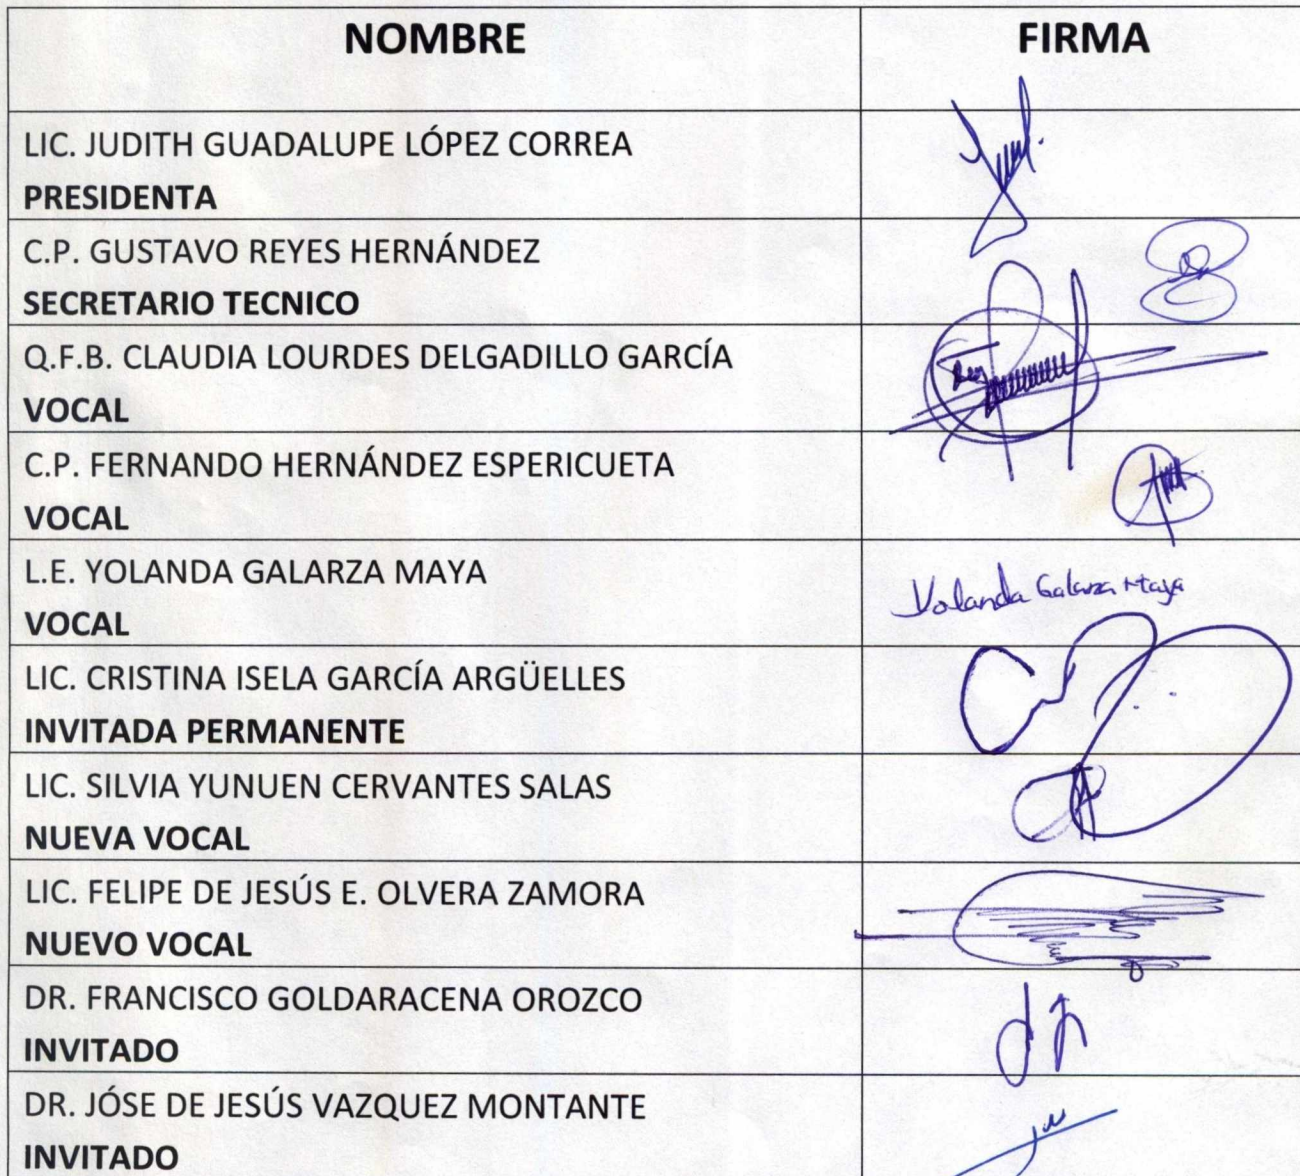 NOMBRE FIRMA
LIC. JUDITH GUADALUPE LÓPEZ CORREA
PRESIDENTA
C.P. GUSTAVO REYES HERNÁNDEZ
SECRETARIO TECNICO
Q.F.B. CLAUDIA LOURDES DELGADILLO GARCÍA
VOCAL
C.P. FERNANDO HERNÁNDEZ ESPERICUETA
VOCAL
L.E. YOLANDA GALARZA MAYA
Yolanda Galarza Maya
VOCAL
LIC. CRISTINA ISELA GARCÍA ARGÜELLES
INVITADA PERMANENTE
LIC. SILVIA YUNUEN CERVANTES SALAS
NUEVA VOCAL
LIC. FELIPE DE JESÚS E. OLVERA ZAMORA
NUEVO VOCAL
DR. FRANCISCO GOLDARACENA OROZCO
INVITADO
DR. JÓSE DE JESÚS VAZQUEZ MONTANTE
INVITADO